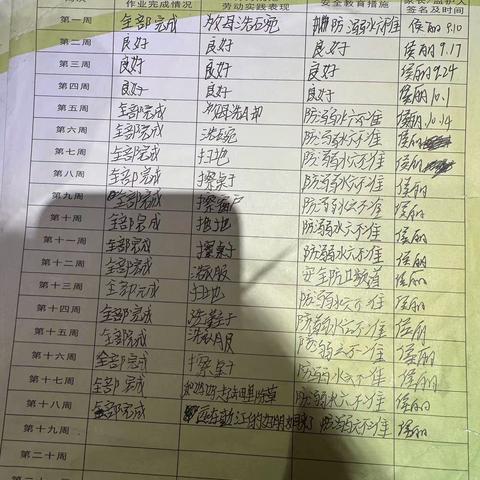 周次 作业完成情况 劳动实践表现 安全教育措施 家长/监护人
签名及时间
第一周 全部完成 放县洗石宛 防溺水六不准 侯丽 9.10
第二周 良好 良好 良好 侯丽 9.17
第三周 良好 良好 良好 侯丽 9.24
第四周 良好 良好 良好 侯丽 10.1
第五周 全部完成 防溺水六不准 侯丽 10.14
第六周 全部完成 洗碗 防溺水六不准 侯丽
第七周 全部完成 扫地 防溺水六不准 侯丽
第八周 全部完成 擦桌子 防溺水六不准 侯丽
第九周 全部完成 擦窗户 防溺水六不准 侯丽
第十周 全部完成 拖地 防溺水六不准 侯丽
第十一周 全部完成 擦桌子 防溺水六不准 侯丽
第十二周 全部完成 洗衣服 安全防卫 侯丽
第十三周 全部完成 扫地 防溺水六不准 侯丽
第十四周 全部完成 洗鞋子 防溺水六不准 侯丽
第十五周 全部完成 洗衣服 防溺六不准 侯丽
第十六周 全部完成 擦桌子 防溺水六不准 侯丽
第十七周 全部完成 和妈妈一起去田里除草 防溺水六不准 侯丽
第十八周 全部完成 防溺六不准 侯丽
第十九周
第二十周